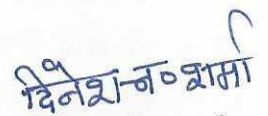 दिनेश न० शर्मा